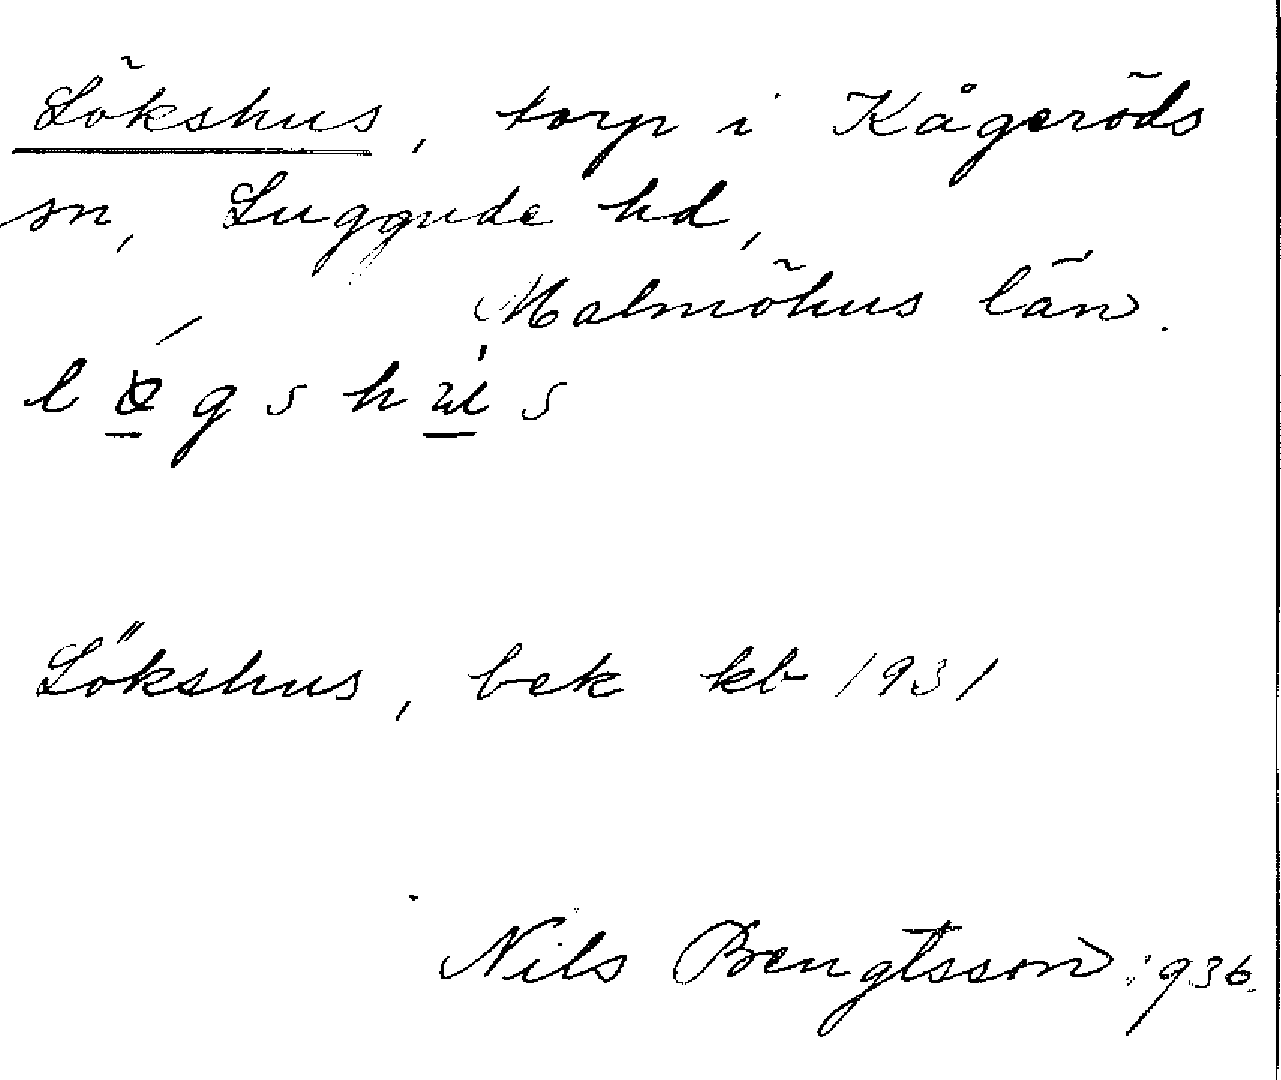 Lökshus, torp i Kågeröds
sn, Luggude hd,
Malmöhus län.
lǿgshús
Lökshus, bek kb 1931
Nils Bengtsson 1936.